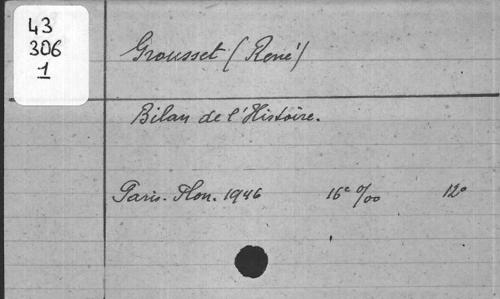 43
306
1
Grousset (René)
Bilan de l'Histoire.
Paris. Plon. 1946 16e o/oo 12o